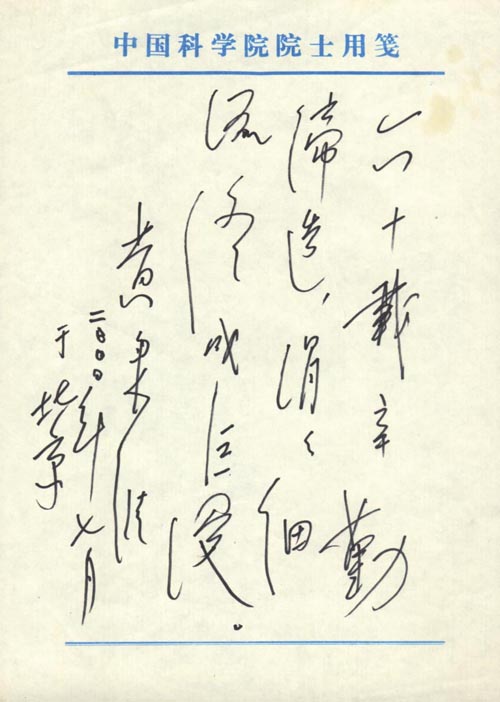 中国科学院院士用笺
六十载辛勤
缔造，涓々细
流终成巨浸。
黄秉维
二〇〇〇年七月
于北京